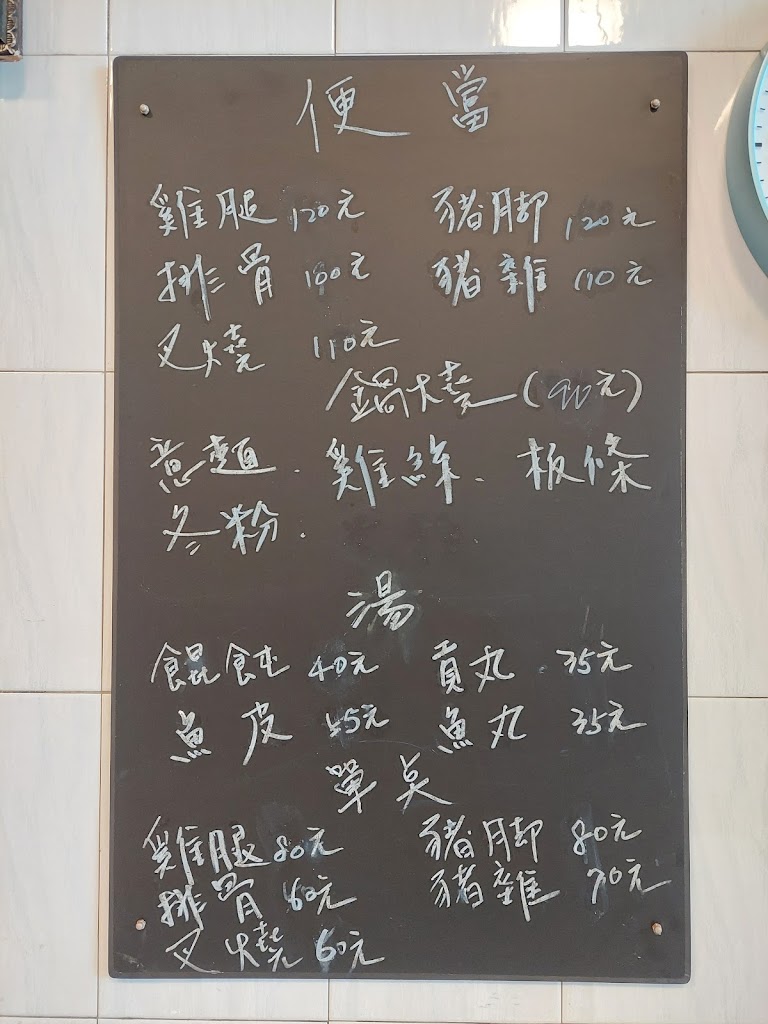 便當
雞腿 120元 豬脚 120元
排骨 100元 豬雜 110元
叉燒 110元
鍋燒(90元)
意麵.雞絲.板條
冬粉.
湯
餛飩 40元 貢丸 35元
魚皮 45元 魚丸 35元
單点
雞腿 80元 豬脚 80元
排骨 60元 豬雜 70元
叉燒 60元